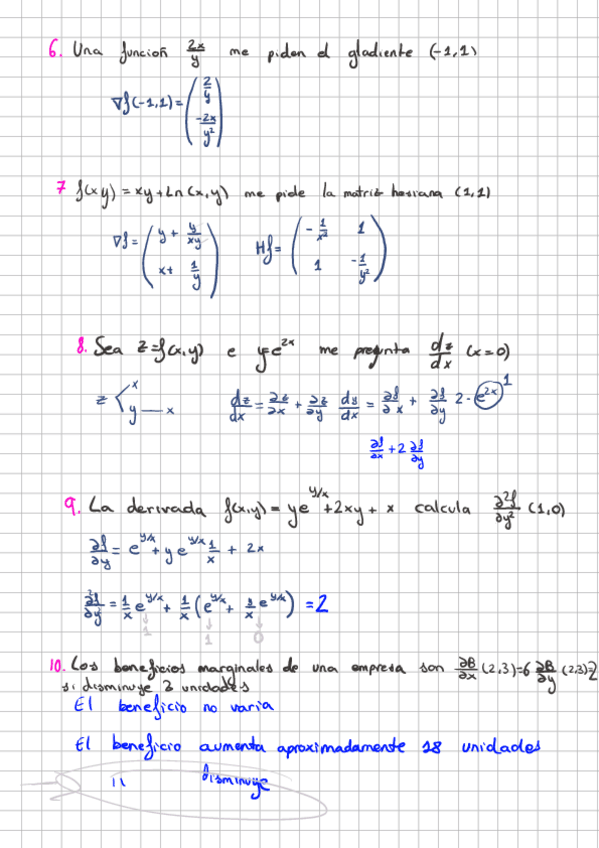 6. Una función 2x/y me piden el gladiente (-1,1)
∇f(-1,1) = (2/y
-2x/y²)
7 f(xy) = xy + Ln(x,y) me pide la matriz hesiana (1,1)
∇f = (y + y/xy
x + 1/y)
Hf = (-1/x² 1
1 -1/y²)
8. Sea z=f(x,y) e y=e^2x me pregunta dz/dx (x=0)
z < x
y — x
dz/dx = ∂z/∂x + ∂z/∂y dy/dx = ∂f/∂x + ∂f/∂y 2·e^2x 1
∂f/∂x + 2 ∂f/∂y
9. La derivada f(x,y) = ye^y/x + 2xy + x calcula ∂²f/∂y² (1,0)
∂f/∂y = e^y/x + y e^y/x 1/x + 2x
∂²f/∂y² = 1/x e^y/x + 1/x (e^y/x + y/x e^y/x) = 2
1 1 0
10. Los beneficios marginales de una empresa son ∂B/∂x (2,3)=6 ∂B/∂y (2,3)=2
si disminuye 3 unidades
El beneficio no varia
El beneficio aumenta aproximadamente 18 unidades
11 disminuye